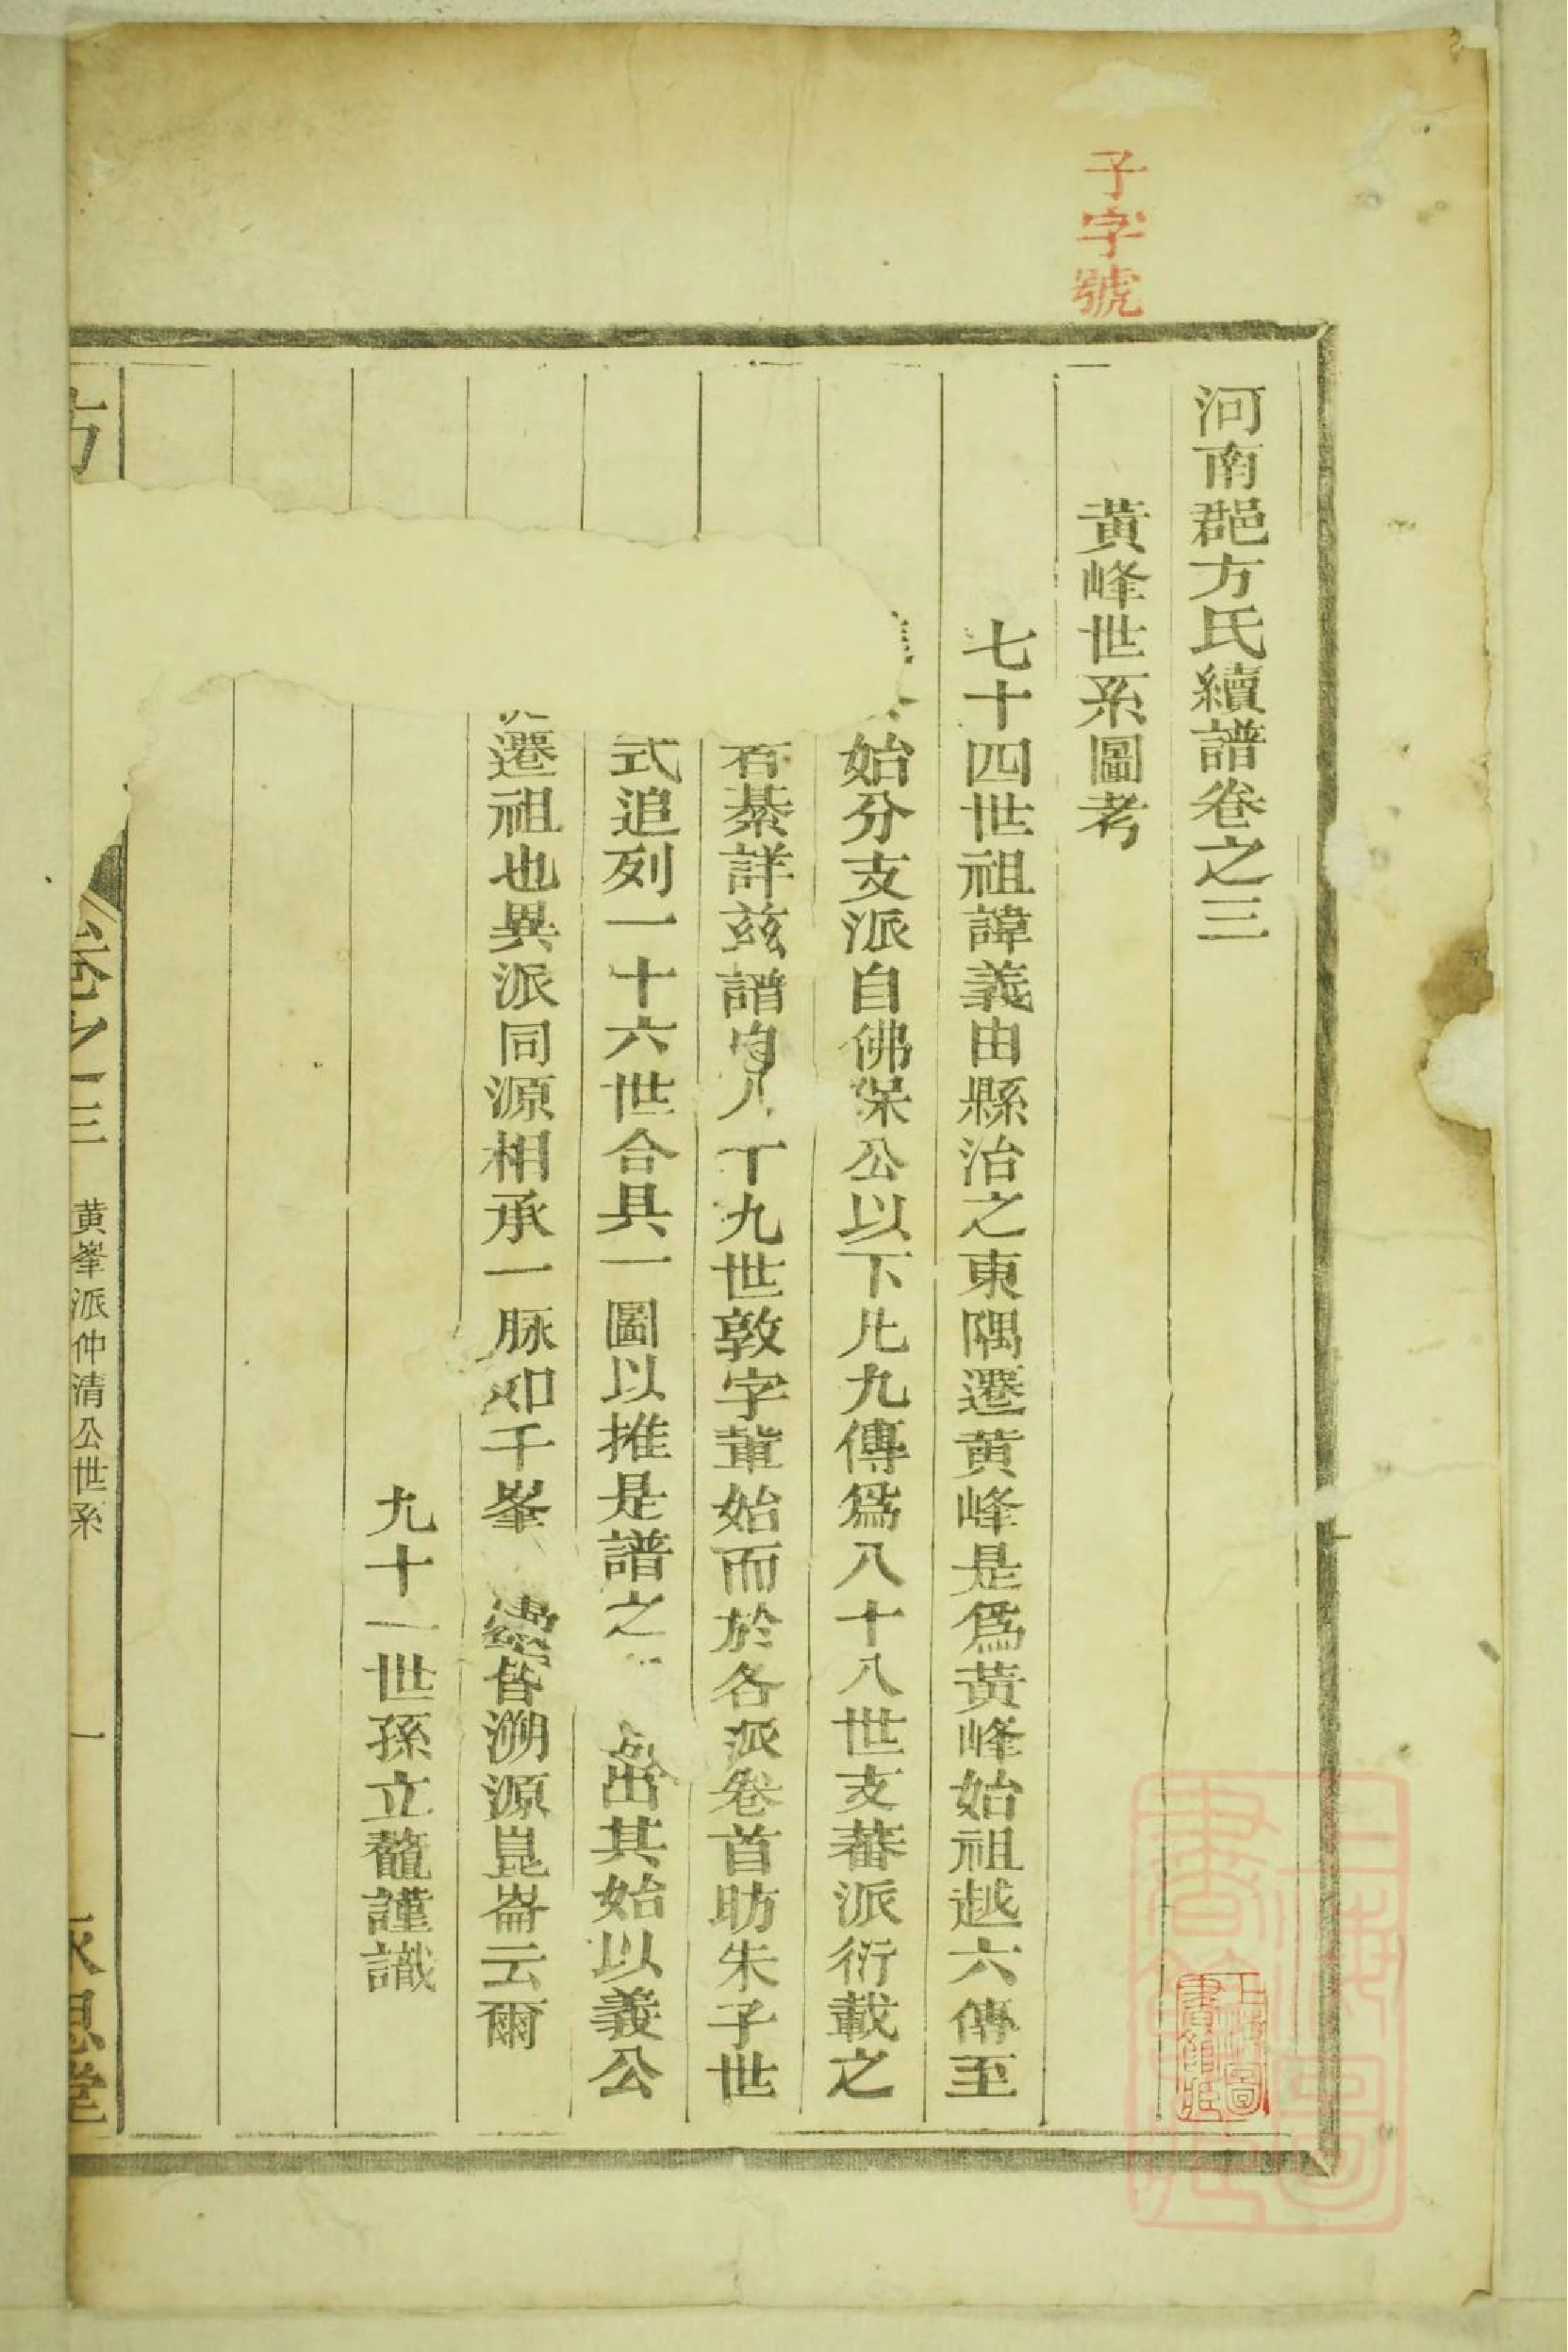 子字號
河南郡方氏續譜卷之三
黄峰世系圖考
七十四世祖諱義由縣治之東隅遷黄峰是爲黄峰始祖越六傳至
始分支派自佛保公以下凡九傳爲八十八世支蕃派衍載之
綦詳兹譜自八十九世敦字輩始而於各派卷首昉朱子世
式追列一十六世合具一圖以推是譜之 出其始以義公
遷祖也異派同源相承一脉如千峯 皆溯源崑崙云爾
九十一世孫立鼇謹識
方
卷之三
黄峯派仲清公世系
一
永思堂
上海圖書館藏
上海圖書館藏